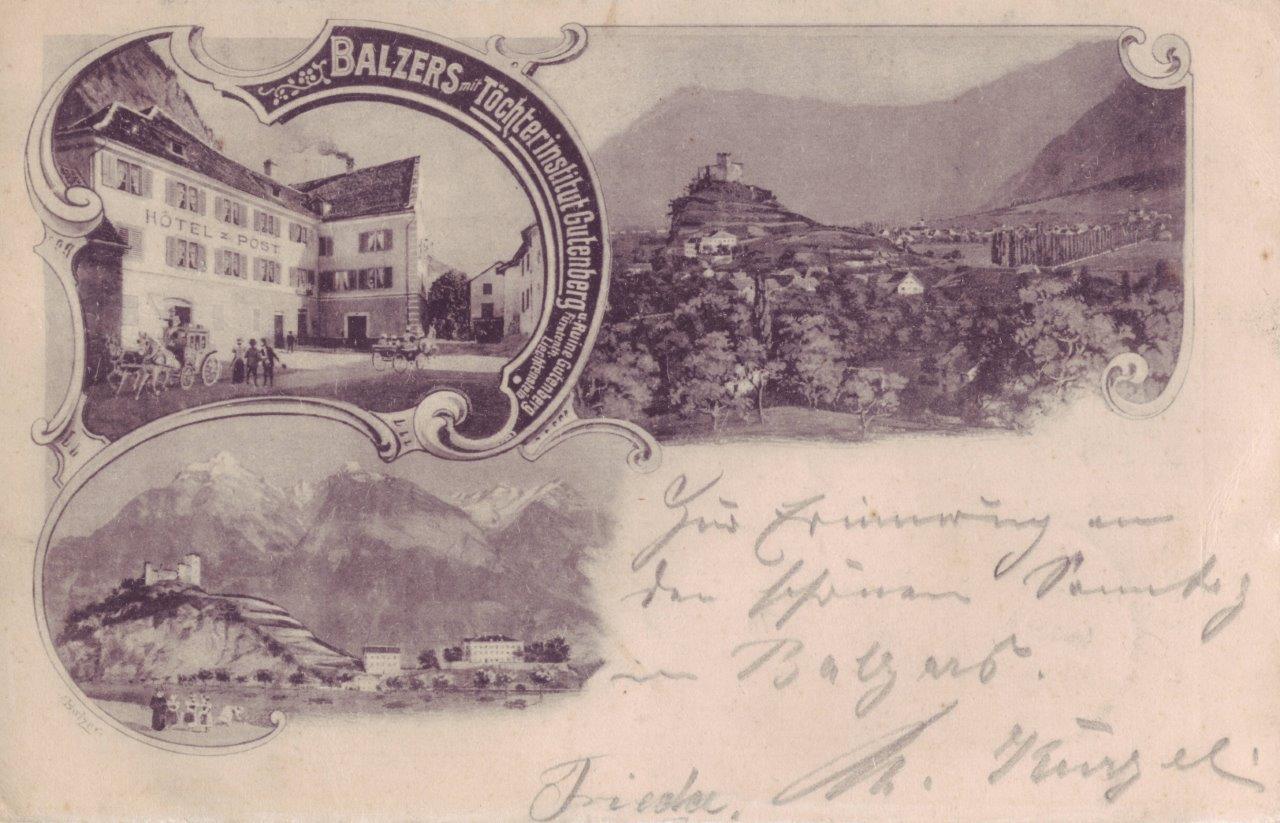 BALZERS mit Töchterinstitut Gutenberg u. Ruine Gutenberg
Fürstenth. Liechtenstein
HÔTEL z. POST
Zur Erinnerung an
den schönen Sonntag
in Balzers.
Frieda.